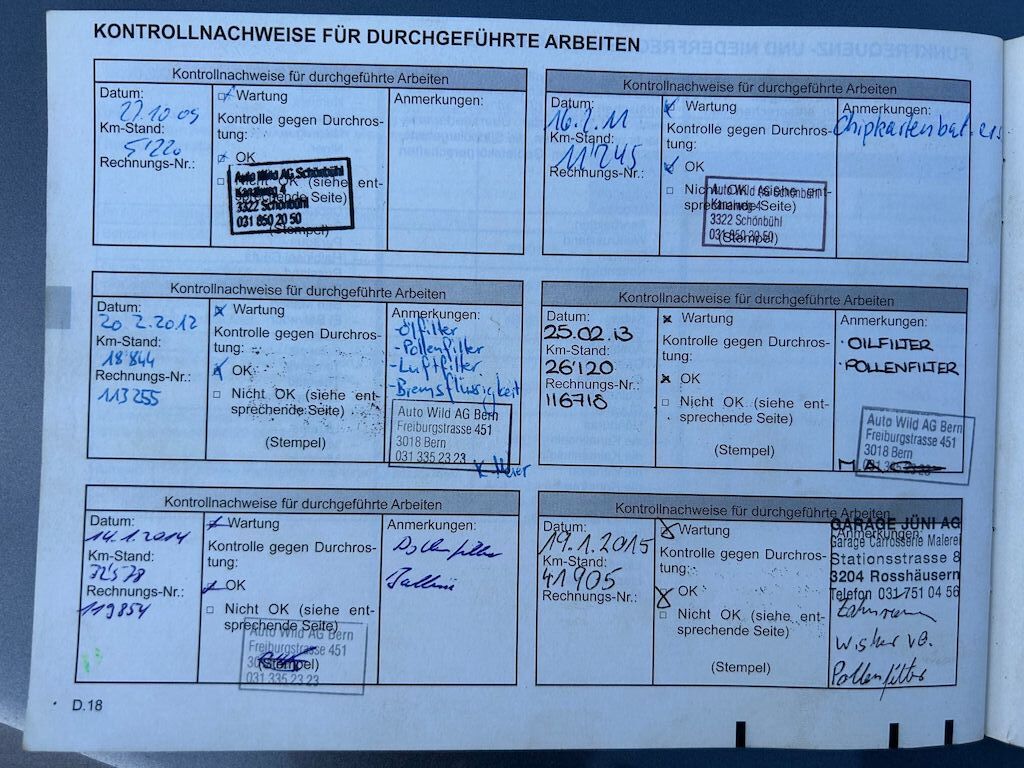 KONTROLLNACHWEISE FÜR DURCHGEFÜHRTE ARBEITEN
Kontrollnachweise für durchgeführte Arbeiten
Datum:
27.10 09
Km-Stand:
5'220
Rechnungs-Nr.:
Wartung
Kontrolle gegen Durchros-
tung:
OK
Nicht OK (siehe ent-
sprechende Seite)
(Stempel)
Auto Wild AG Schönbühl
Kanalweg 4
3322 Schönbühl
031 850 20 50
Anmerkungen:
Kontrollnachweise für durchgeführte Arbeiten
Datum:
16.2.11
Km-Stand:
11'245
Rechnungs-Nr.:
Wartung
Kontrolle gegen Durchros-
tung:
OK
Nicht OK (siehe ent-
sprechende Seite)
(Stempel)
Auto Wild AG Schönbühl
Kanalweg 4
3322 Schönbühl
031 850 20 50
Anmerkungen:
Chipkartenbat.
Kontrollnachweise für durchgeführte Arbeiten
Datum:
20.2.2012
Km-Stand:
18'844
Rechnungs-Nr.:
113255
Wartung
Kontrolle gegen Durchros-
tung:
OK
Nicht OK (siehe ent-
sprechende Seite)
(Stempel)
Anmerkungen:
-Ölfilter
-Pollenfilter
-Luftfilter
-Bremsflüssigkeit
Auto Wild AG Bern
Freiburgstrasse 451
3018 Bern
031 335 23 23
K. Meier
Kontrollnachweise für durchgeführte Arbeiten
Datum:
25.02.13
Km-Stand:
26'120
Rechnungs-Nr.:
116718
Wartung
Kontrolle gegen Durchros-
tung:
OK
Nicht OK (siehe ent-
sprechende Seite)
(Stempel)
Anmerkungen:
· OILFILTER
· POLLENFILTER
Auto Wild AG Bern
Freiburgstrasse 451
3018 Bern
031 335 23 23
Kontrollnachweise für durchgeführte Arbeiten
Datum:
14.1.2014
Km-Stand:
32'578
Rechnungs-Nr.:
119854
Wartung
Kontrolle gegen Durchros-
tung:
OK
Nicht OK (siehe ent-
sprechende Seite)
(Stempel)
Auto Wild AG Bern
Freiburgstrasse 451
3018 Bern
031 335 23 23
Anmerkungen:
Pollenfilter
Kontrollnachweise für durchgeführte Arbeiten
Datum:
19.1.2015
Km-Stand:
41905
Rechnungs-Nr.:
Wartung
Kontrolle gegen Durchros-
tung:
OK
Nicht OK (siehe ent-
sprechende Seite)
(Stempel)
Anmerkungen:
GARAGE JÜNI AG
Garage Carrosserie Malerei
Stationsstrasse 8
3204 Rosshäusern
Telefon 031 751 04 56
Zahnriemen
Pollenfilter
D.18